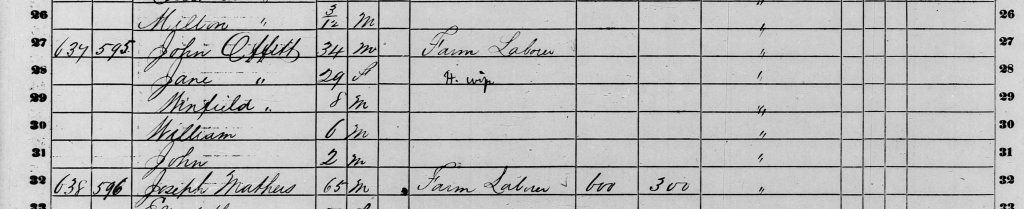 26 Milton " 3/12 M " 26
27 637 595 John Offitt 34 M Farm Laborer " 27
28 Jane " 29 f H. wife " 28
29 Winfield " 8 M " 29
30 William 6 M " 30
31 John 2 M " 31
32 638 596 Joseph Mathers 65 M Farm Laborer 600 300 " 32
33 33